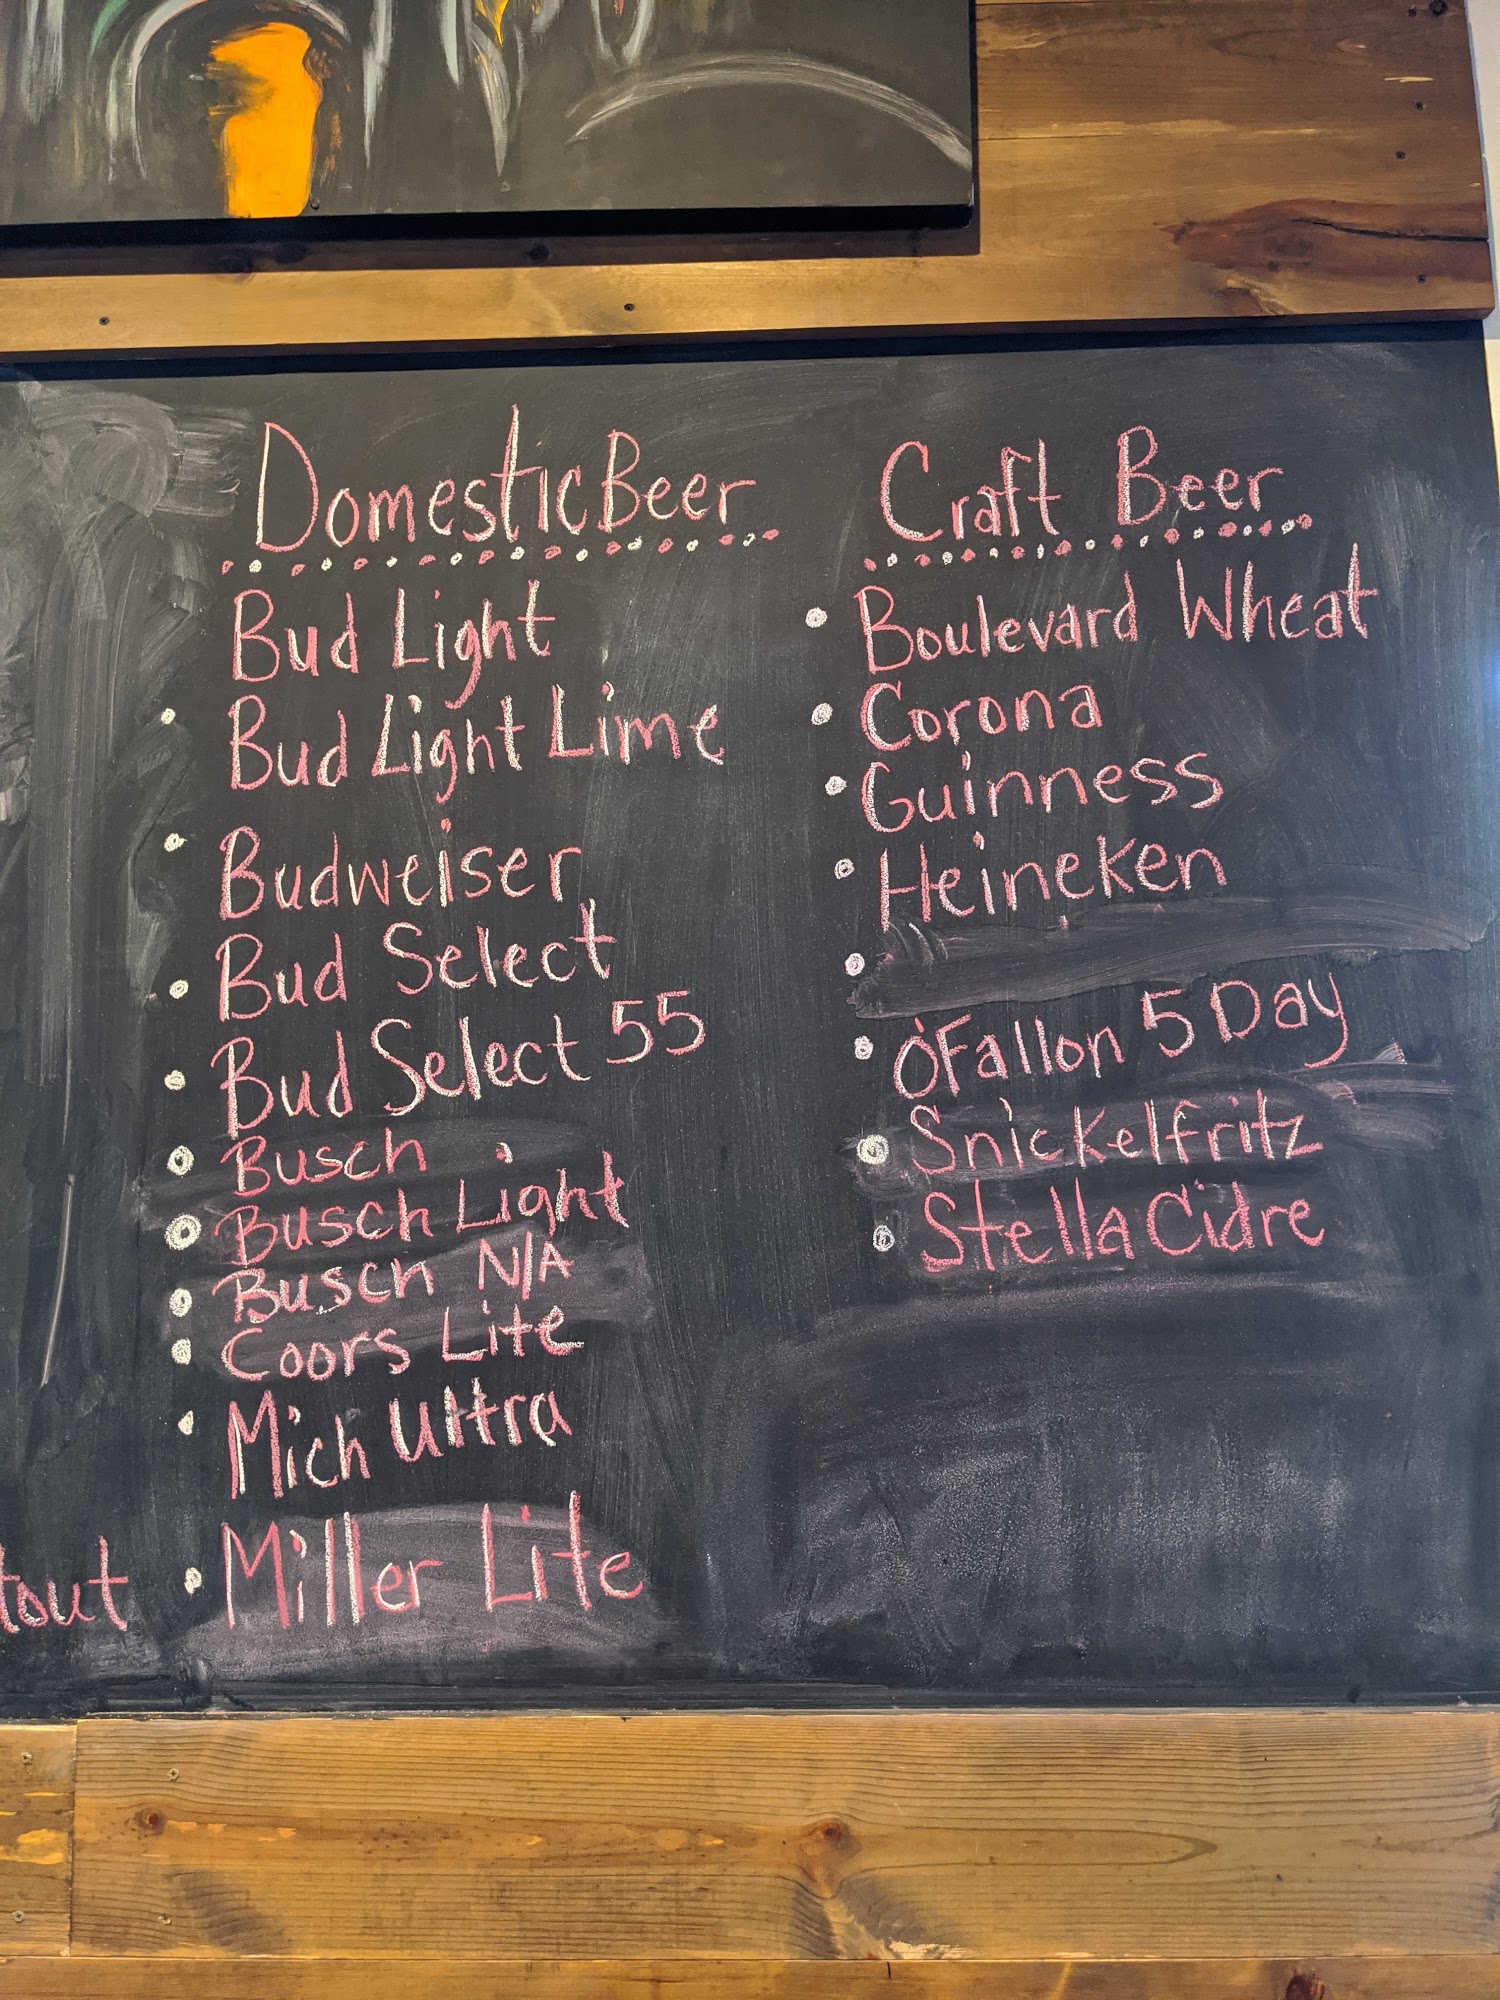 Domestic Beer
Bud Light
Bud Light Lime
Budweiser
Bud Select
Bud Select 55
Busch
Busch Light
Busch N/A
Coors Lite
Mich Ultra
Miller Lite
tout
Craft Beer
Boulevard Wheat
Corona
Guinness
Heineken
O'Fallon 5 Day
Snickelfritz
Stella Cidre